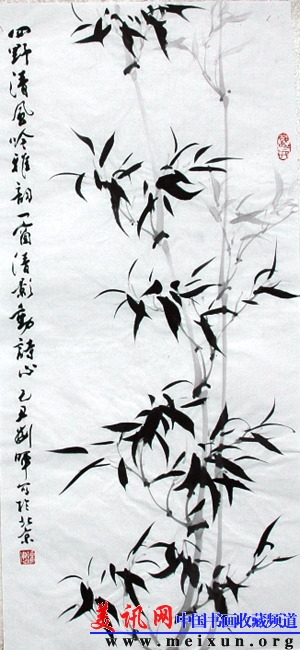 四野清風吟雅韵一窗清影動詩心己丑劉暉写於北京
美讯网 中国书画收藏频道
www.meixun.org